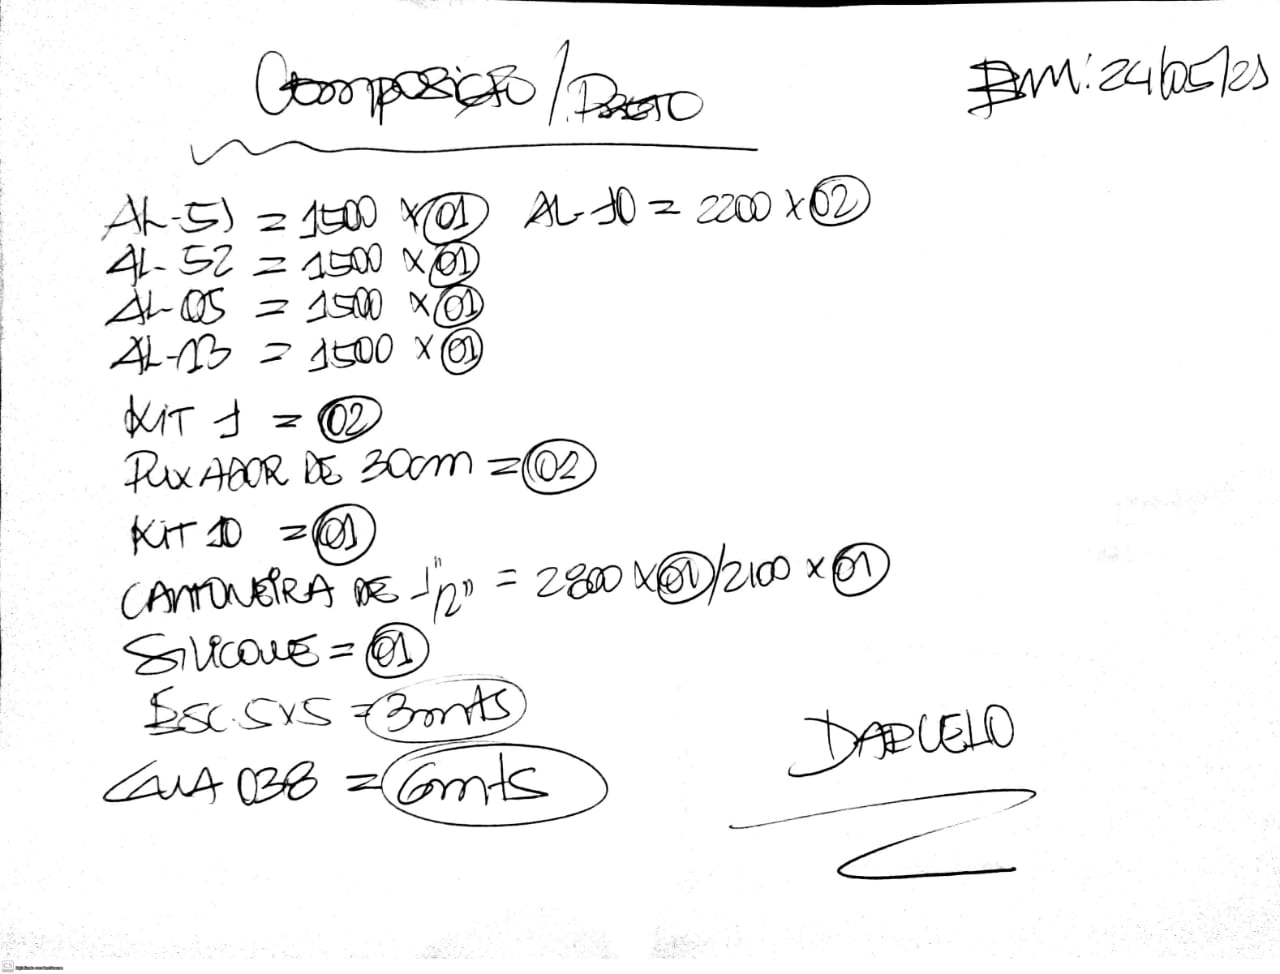 Composição / PRETO
EM: 24/05/21
AL-51 = 1500 x 01 AL-10 = 2200 x 02
AL-52 = 1500 x 01
AL-05 = 1500 x 01
AL-13 = 1500 x 01
KIT 1 = 02
PUXADOR DE 30cm = 02
KIT 10 = 01
CANTONEIRA DE 1"/2" = 2800 x 01 / 2100 x 01
SILICONE = 01
ESC. 5x5 = 3mts
GUIA 038 = 6mts